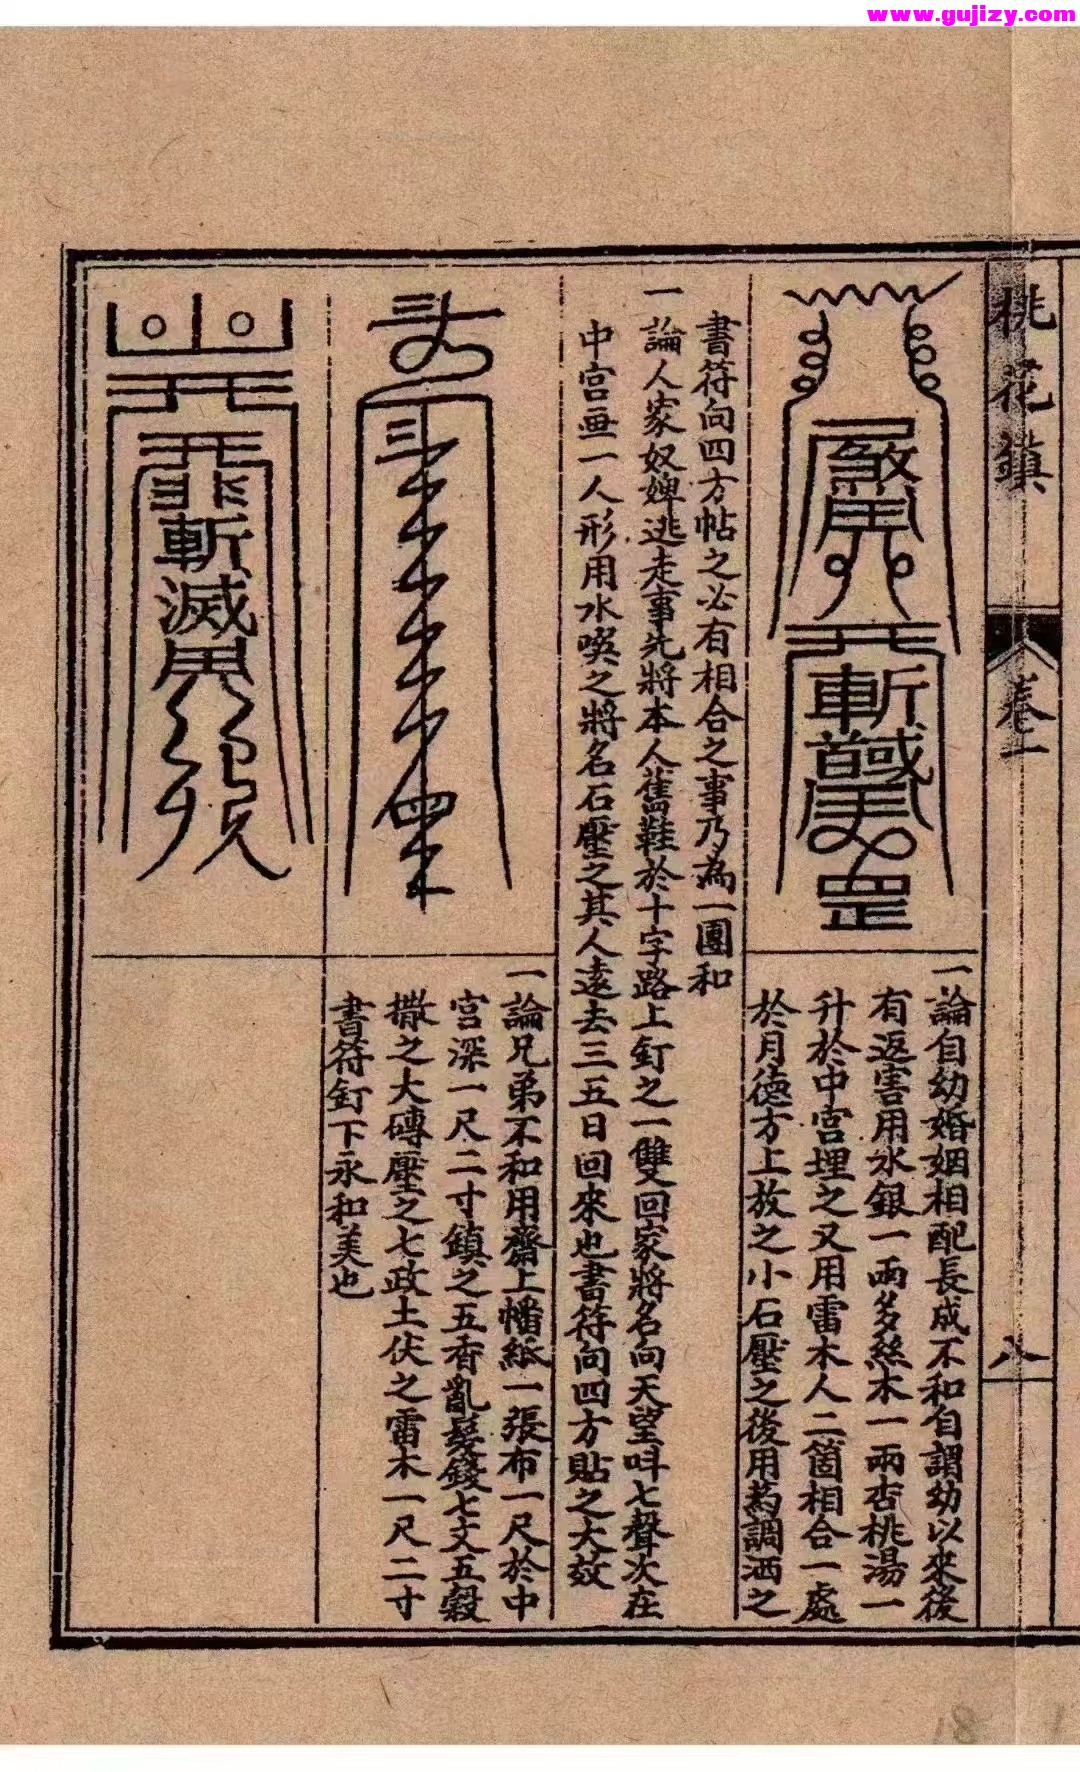 www.gujizy.com
桃花鎮
卷一
八
斬
一論自幼婚姻相配長成不和自謂幼以來後
有返害用水銀一兩多絲木一兩杏桃湯一
升於中宮埋之又用雷木人二箇相合一處
於月德方上放之小石壓之後用藥調洒之
書符向四方帖之必有相合之事乃為一團和
一論人家奴婢逃走事先將本人舊鞋於十字路上釘之一雙回家將名向天望呌七聲次在
中宮畫一人形用水噀之將名石壓之其人遠去三五日回來也書符向四方貼之大效
一論兄弟不和用齋上幡紙一張布一尺於中
宮深一尺二寸鎮之五香亂髮錢七文五穀
撒之大磚壓之七政土伏之雷木一尺二寸
書符釘下永和美也
斬
滅